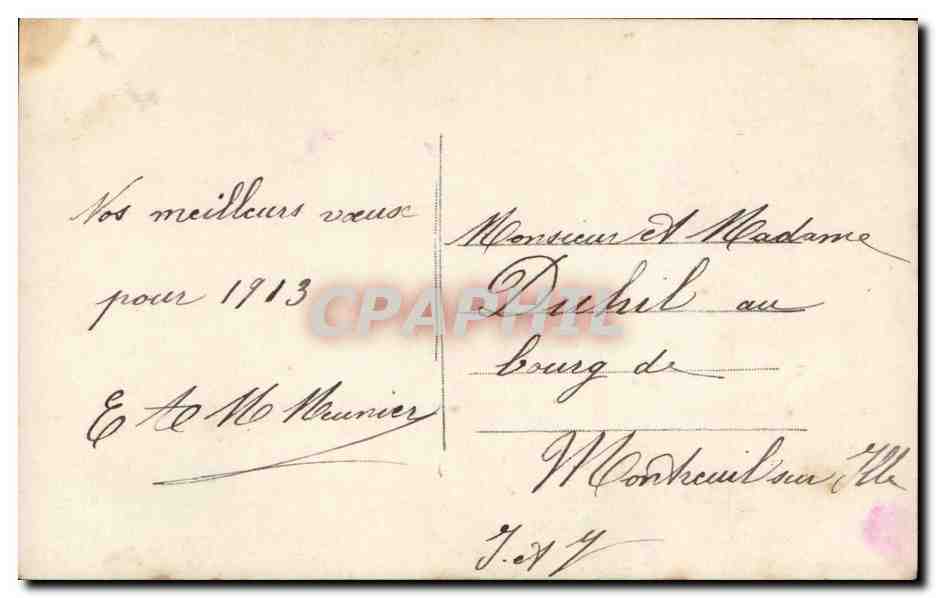 Nos meilleurs vœux
pour 1913
E et M Meunier
Monsieur et Madame
Duhil au
bourg de
Montreuil sur Ille
I. et V
CPAPHIL